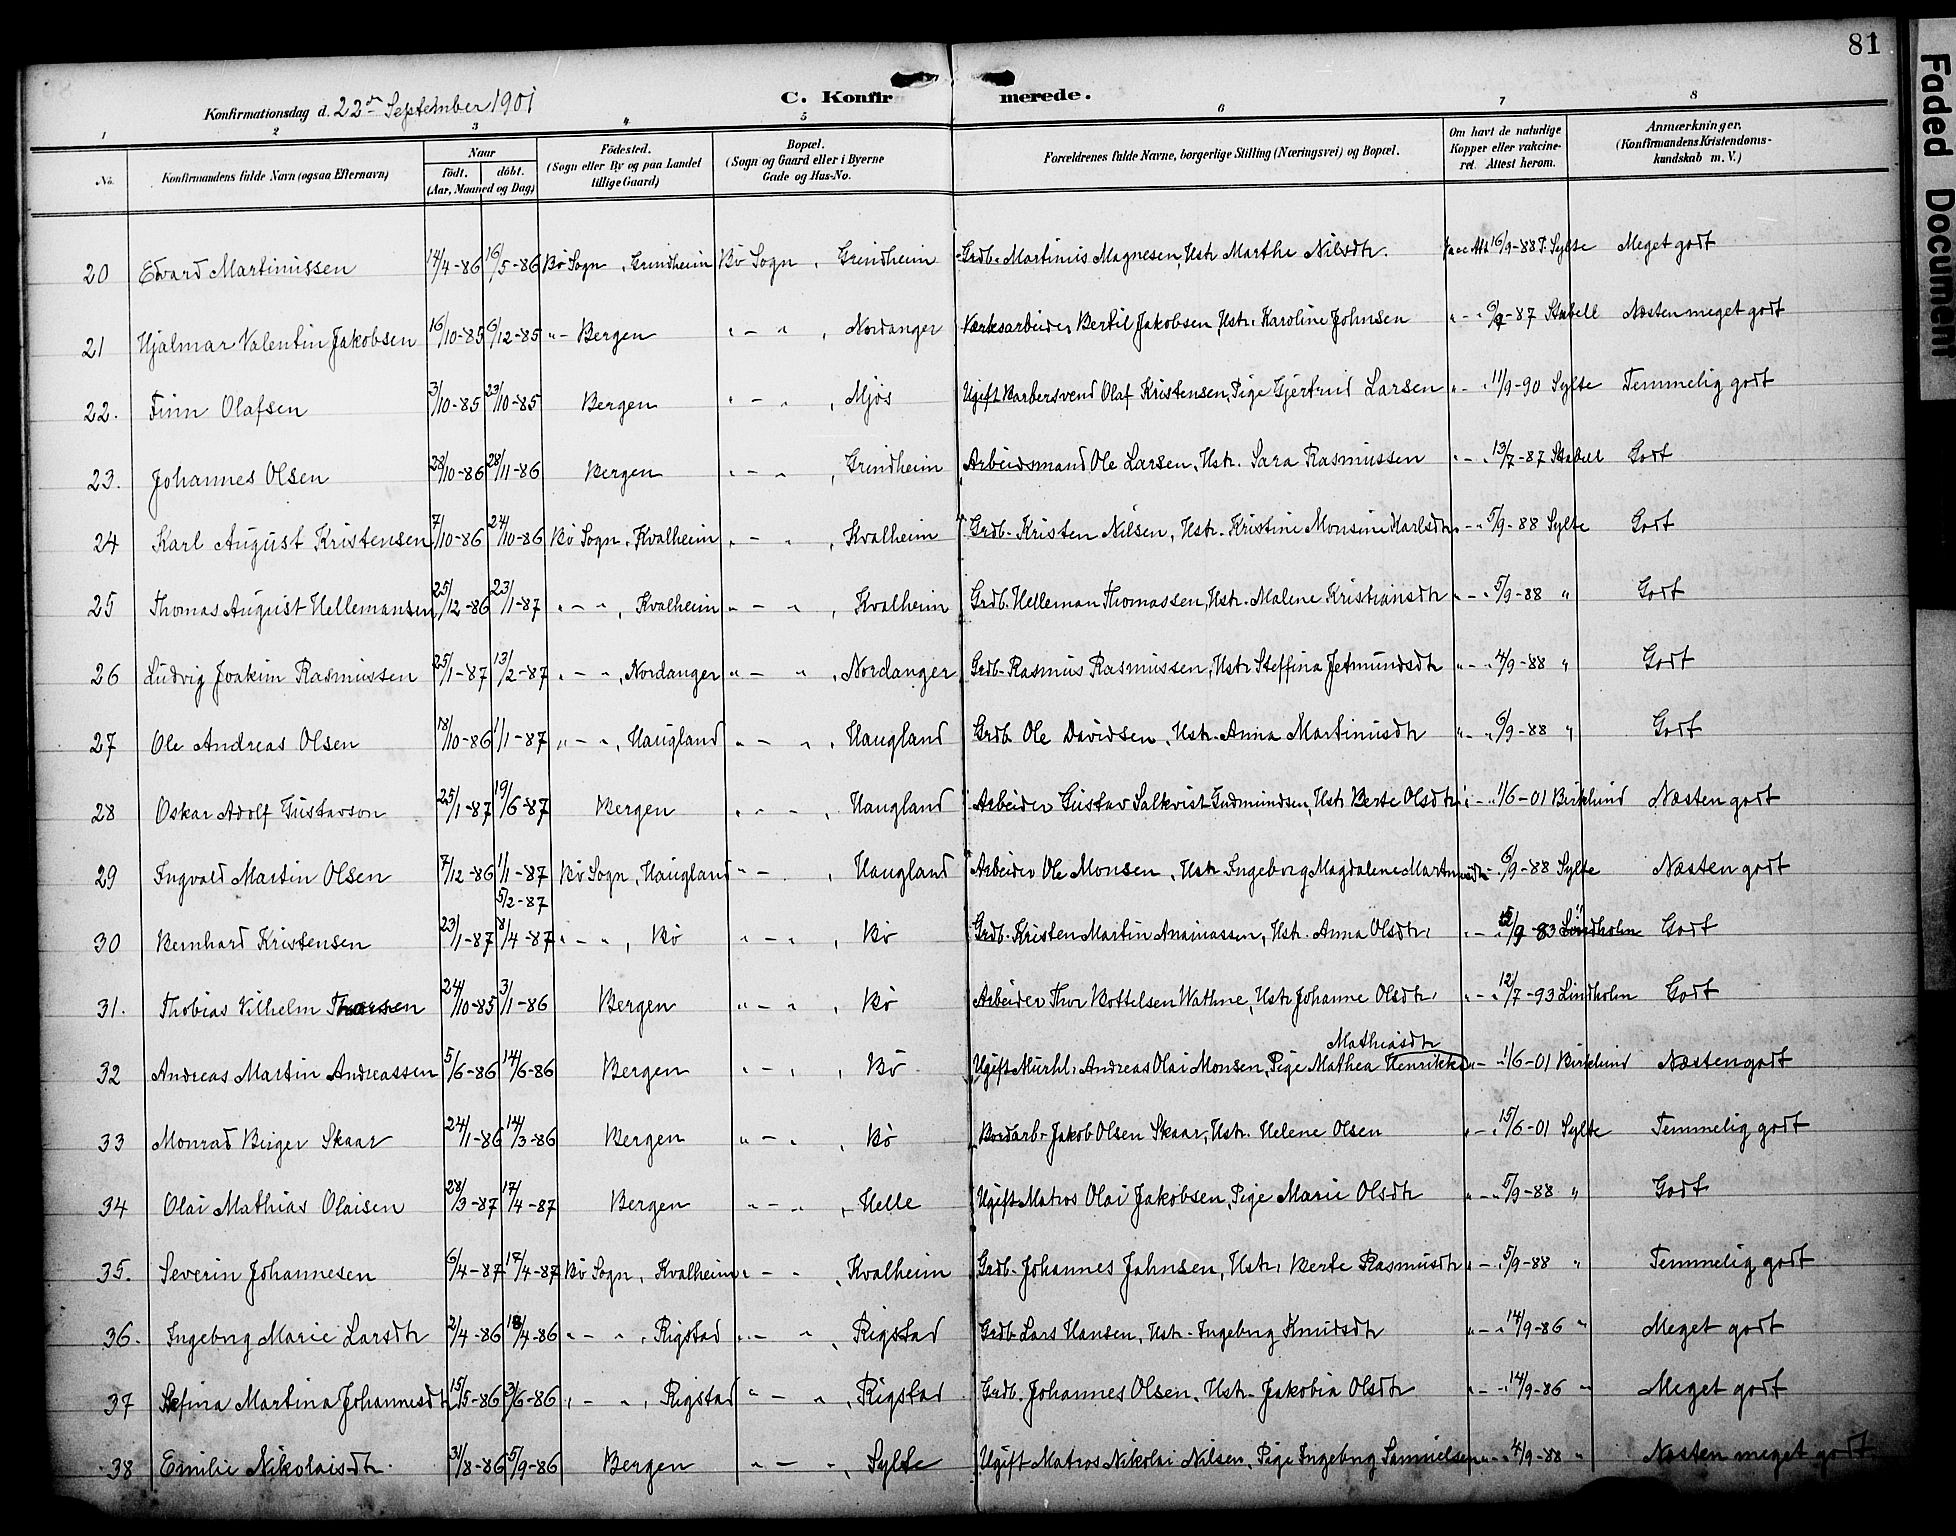 81
Faded Document
Konfirmationsdag d. 22de September 1901
C. Konfirmerede.
1 2 3 4 5 6 7 8
No. Konfirmandens fulde Navn (ogsaa Efternavn) Naar født. døbt. (Aar, Maaned og Dag) Fødested. (Sogn eller By og paa Landet tillige Gaard) Bopæl. (Sogn og Gaard eller i Byerne Gade og Hus-No. Forældrenes fulde Navne, borgerlige Stilling (Næringsvei) og Bopæl. Om havt de naturlige Kopper eller vakcineret. Attest herom. Anmærkninger. (Konfirmandens Kristendomskundskab m. V.)
20 Edvard Martinussen 14/4-86 16/5-86 Bø Sogn, Grindheim Bø Sogn, Grindheim Grdb. Martinus Magnesen, Hstr Marthe Nilsdtr. 16/9-88 Sylte Meget godt
21 Hjalmar Valentin Jakobsen 16/10-85 6/12-85 "- Bergen " - " , Nordanger Værksarbeider Bertil Jakobsen, Hstr. Karoline Johnsen " - " -87 Stabell Næsten meget godt
22. Finn Olafsen 3/10-85 23/10-85 Bergen " - " , Mjøs Ugift Barbersvend Olaf Kristensen, Pige Gjertrud Larsen " - " 11/9-90 Sylte Temmelig godt
23. Johannes Olsen 28/10-86 28/11-86 Bergen " - " , Grindheim Arbeidsmand Ole Larsen, Hstr. Sara Rasmussen " - " 13/7-87 Stabell Godt
24 Karl August Kristensen 7/10-86 24/10-86 Bø Sogn, Kvalheim " - " , Kvalheim Grdb. Kristen Nilsen, Hstr. Kristine Monsine Karlsdtr " - " 5/9-88 Sylte Godt
25 Thomas August Hellemansen 25/12-86 23/1-87 " - " , Kvalheim " - " , Kvalheim Grdb. Helleman Thomassen, Hstr. Malene Kristiansdtr " - " 5/9-88 " Godt
26 Ludvig Joakim Rasmussen 25/1-87 13/2-87 " - " , Nordanger " - " , Nordanger Grdb. Rasmus Rasmussen, Hstr Steffina Jetmundsdtr " - " 4/9-88 " Godt
27 Ole Andreas Olsen 18/10-86 1/1-87 " - " , Haugland " - " , Haugland Grdb. Ole Davidsen, Hstr. Anna Martinusdtr " - " 6/9-88 " Godt
28 Oskar Adolf Gustavson 25/1-87 19/6-87 Bergen " - " , Haugland Arbeider Gustav Salkvist Gudmundsen, Hstr Berte Olsdtr " - " 1/6-01 Birkelund Næsten godt
29 Ingvald Martin Olsen 7/12-86 1/1-87 Bø Sogn, Haugland " - " , Haugland Arbeider Ole Monsen, Hstr Ingeborg Magdalene " - 6/9-88 Sylte Næsten godt
5/2-87
30 Bernhard Kristensen 23/1-87 8/4-87 " - " , Bø " - " , Bø Grdb. Kristen Martin Ananiassen, Hstr. Anna Olsdtr. " - " Lindholm " Godt
31. Thobias Vilhelm Thorsen 24/10-85 3/1-86 Bergen " - " , Bø Arbeider Thor Bottelsen Wathne, Hstr Johanne Olsdtr. " - " 12/7-93 Lindholm Godt
Mathiasdtr
32 Andreas Martin Andreassen 5/6-86 14/6-86 Bergen " - " , Bø Ugift Murhl. Andreas Olai Monsen, Pige Mathea Henrikke " - " 1/6-01 Birkelund Næsten godt
33 Monrad Birger Skaar 24/1-86 14/3-86 Bergen " - " , Bø Bordarb. Jakob Olsen Skaar, Hstr. Helene Olsen " - " 15/6-01 Sylte Temmelig godt
34 Olai Mathias Olaisen 28/3-87 17/4-87 Bergen " - " , Helle Ugift Matros Olai Jakobsen, Pige Marie Olsdtr " - " 5/9-88 " Godt
35. Severin Johannesen 6/4-87 17/4-87 Bø Sogn, Kvalheim " - " , Kvalheim Grdb. Johannes Jahnsen, Hstr. Berte Rasmusdtr " - " 5/9-88 " Temmelig godt
36. Ingeborg Marie Larsdtr 2/4-86 18/4-86 " - " , Rigstad " - " , Rigstad Grdb Lars Hansen, Hstr. Ingeborg Knudsdtr " - " 14/9-86 " Meget godt
37 Sefina Martina Johannesdtr 15/5-86 3/6-86 " - " , Rigstad " - " , Rigstad Grdb. Johannes Olsen, Hstr. Jakobia Olsdtr " - " 14/9-86 " Meget godt
38 Emilie Nikolaisdtr. 31/8-86 5/9-86 Bergen " - " , Sylte Ugift Matros Nikolai Nilsen, Pige Ingeborg Samuelsen " - " 4/9-88 " Næsten meget godt